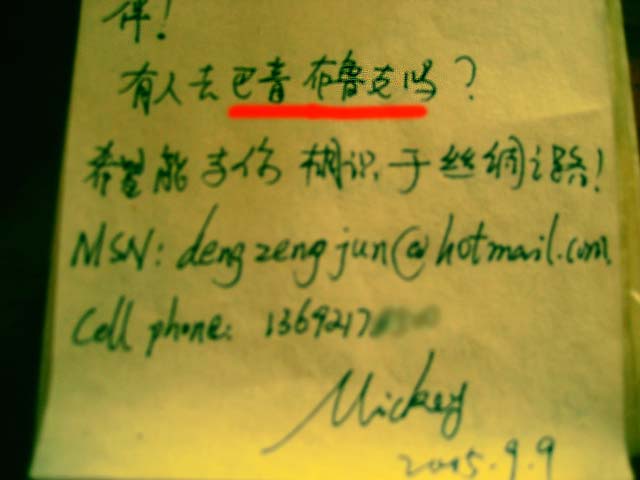 伴!
有人去巴音布鲁克吗?
希望能与你相识于丝绸之路!
MSN: dengzengjun@hotmail.com
Cell phone: 1369217
Mickey
2005.9.9